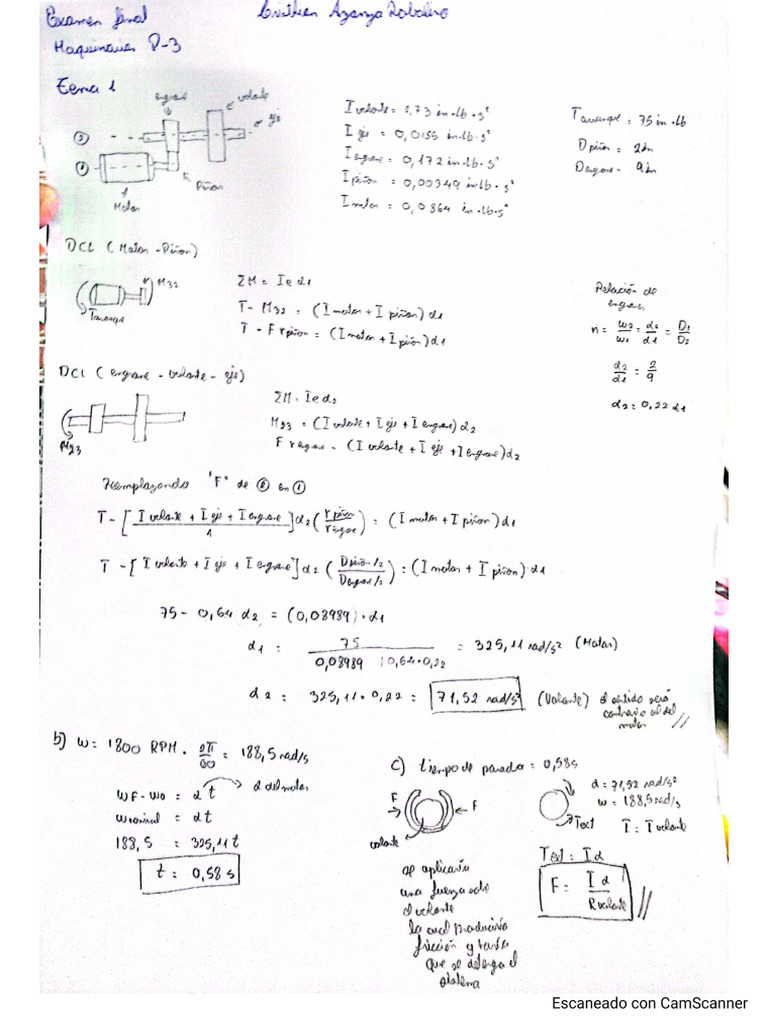 Examen final
Cristhian Ayanza Robalino
Maquinarias P-3
Tema 1
engrane
volante
eje
②
①
Piñon
1
Motor
I volante = 2,73 in·lb·s²
I eje = 0,0155 in·lb·s²
I engrane = 0,172 in·lb·s²
I piñon = 0,00349 in·lb·s²
I motor = 0,0864 in·lb·s²
T arranque = 75 in·lb
D piñon = 2in
D engrane = 9in
DCL (Motor - Piñon)
M32
Tarranque
ΣM = Ie α1
T - M32 = (I motor + I piñon) α1
T - F r piñon = (I motor + I piñon) α1
Relación de
engrane
n = ω2/ω1 = α2/α1 = D1/D2
α2/α1 = 2/9
α2 = 0,22 α1
DCL (engrane - volante - eje)
M23
ΣM = Ie α2
M23 = (I volante + I eje + I engrane) α2
F r engrane = (I volante + I eje + I engrane) α2
Reemplazando "F" de ② en ①
T - [(I volante + I eje + I engrane)/1] α2 (r piñon/r engrane) = (I motor + I piñon) α1
T - [I volante + I eje + I engrane] α2 (D piñon/2 / D engrane/2) = (I motor + I piñon) · α1
75 - 0,64 α2 = (0,08989) · α1
α1 = 75 / 0,08989 + 0,64·0,22 = 325,11 rad/s² (Motor)
α2 = 325,11 · 0,22 = 71,52 rad/s² (Volante) el sentido será
contrario al del
motor
b) ω = 1800 RPM · 2π/60 = 188,5 rad/s
ωF - ωo = α t
α del motor
ω nominal = αt
188,5 = 325,11 t
t = 0,58 s
c) tiempo de parada = 0,58s
F
F
volante
se aplicaría
una fuerza sobre
el volante
la cual produciría
fricción y haría
que se detenga el
sistema
α = 71,52 rad/s²
ω = 188,5 rad/s
Text
I = I volante
Text = I α
F = I α / R volante
Escaneado con CamScanner